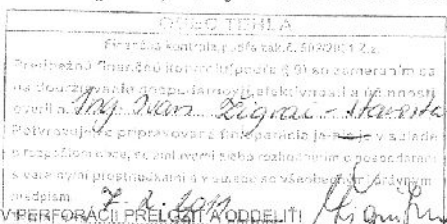 OBEC TEHLA
Finančná kontrola podľa zák.č. 502/2001 Z.z.
Predbežnú finančnú kontrolu (podľa § 9) so zameraním sa
na dodržiavanie hospodárnosti, efektívnosti a účinnosti
overil: Ing. Ivan Žigrai - starosta
Potvrdzuje: pripravovaná fin. operácia je-nie je v súlade
s rozpočtom obce, so zmluvami alebo rozhodnutím o hospodárení
s verejnými prostriedkami a v súlade so všeobecným právnym
predpisom
V PERFORÁCII PRELOŽIŤ A ODDELIŤ!